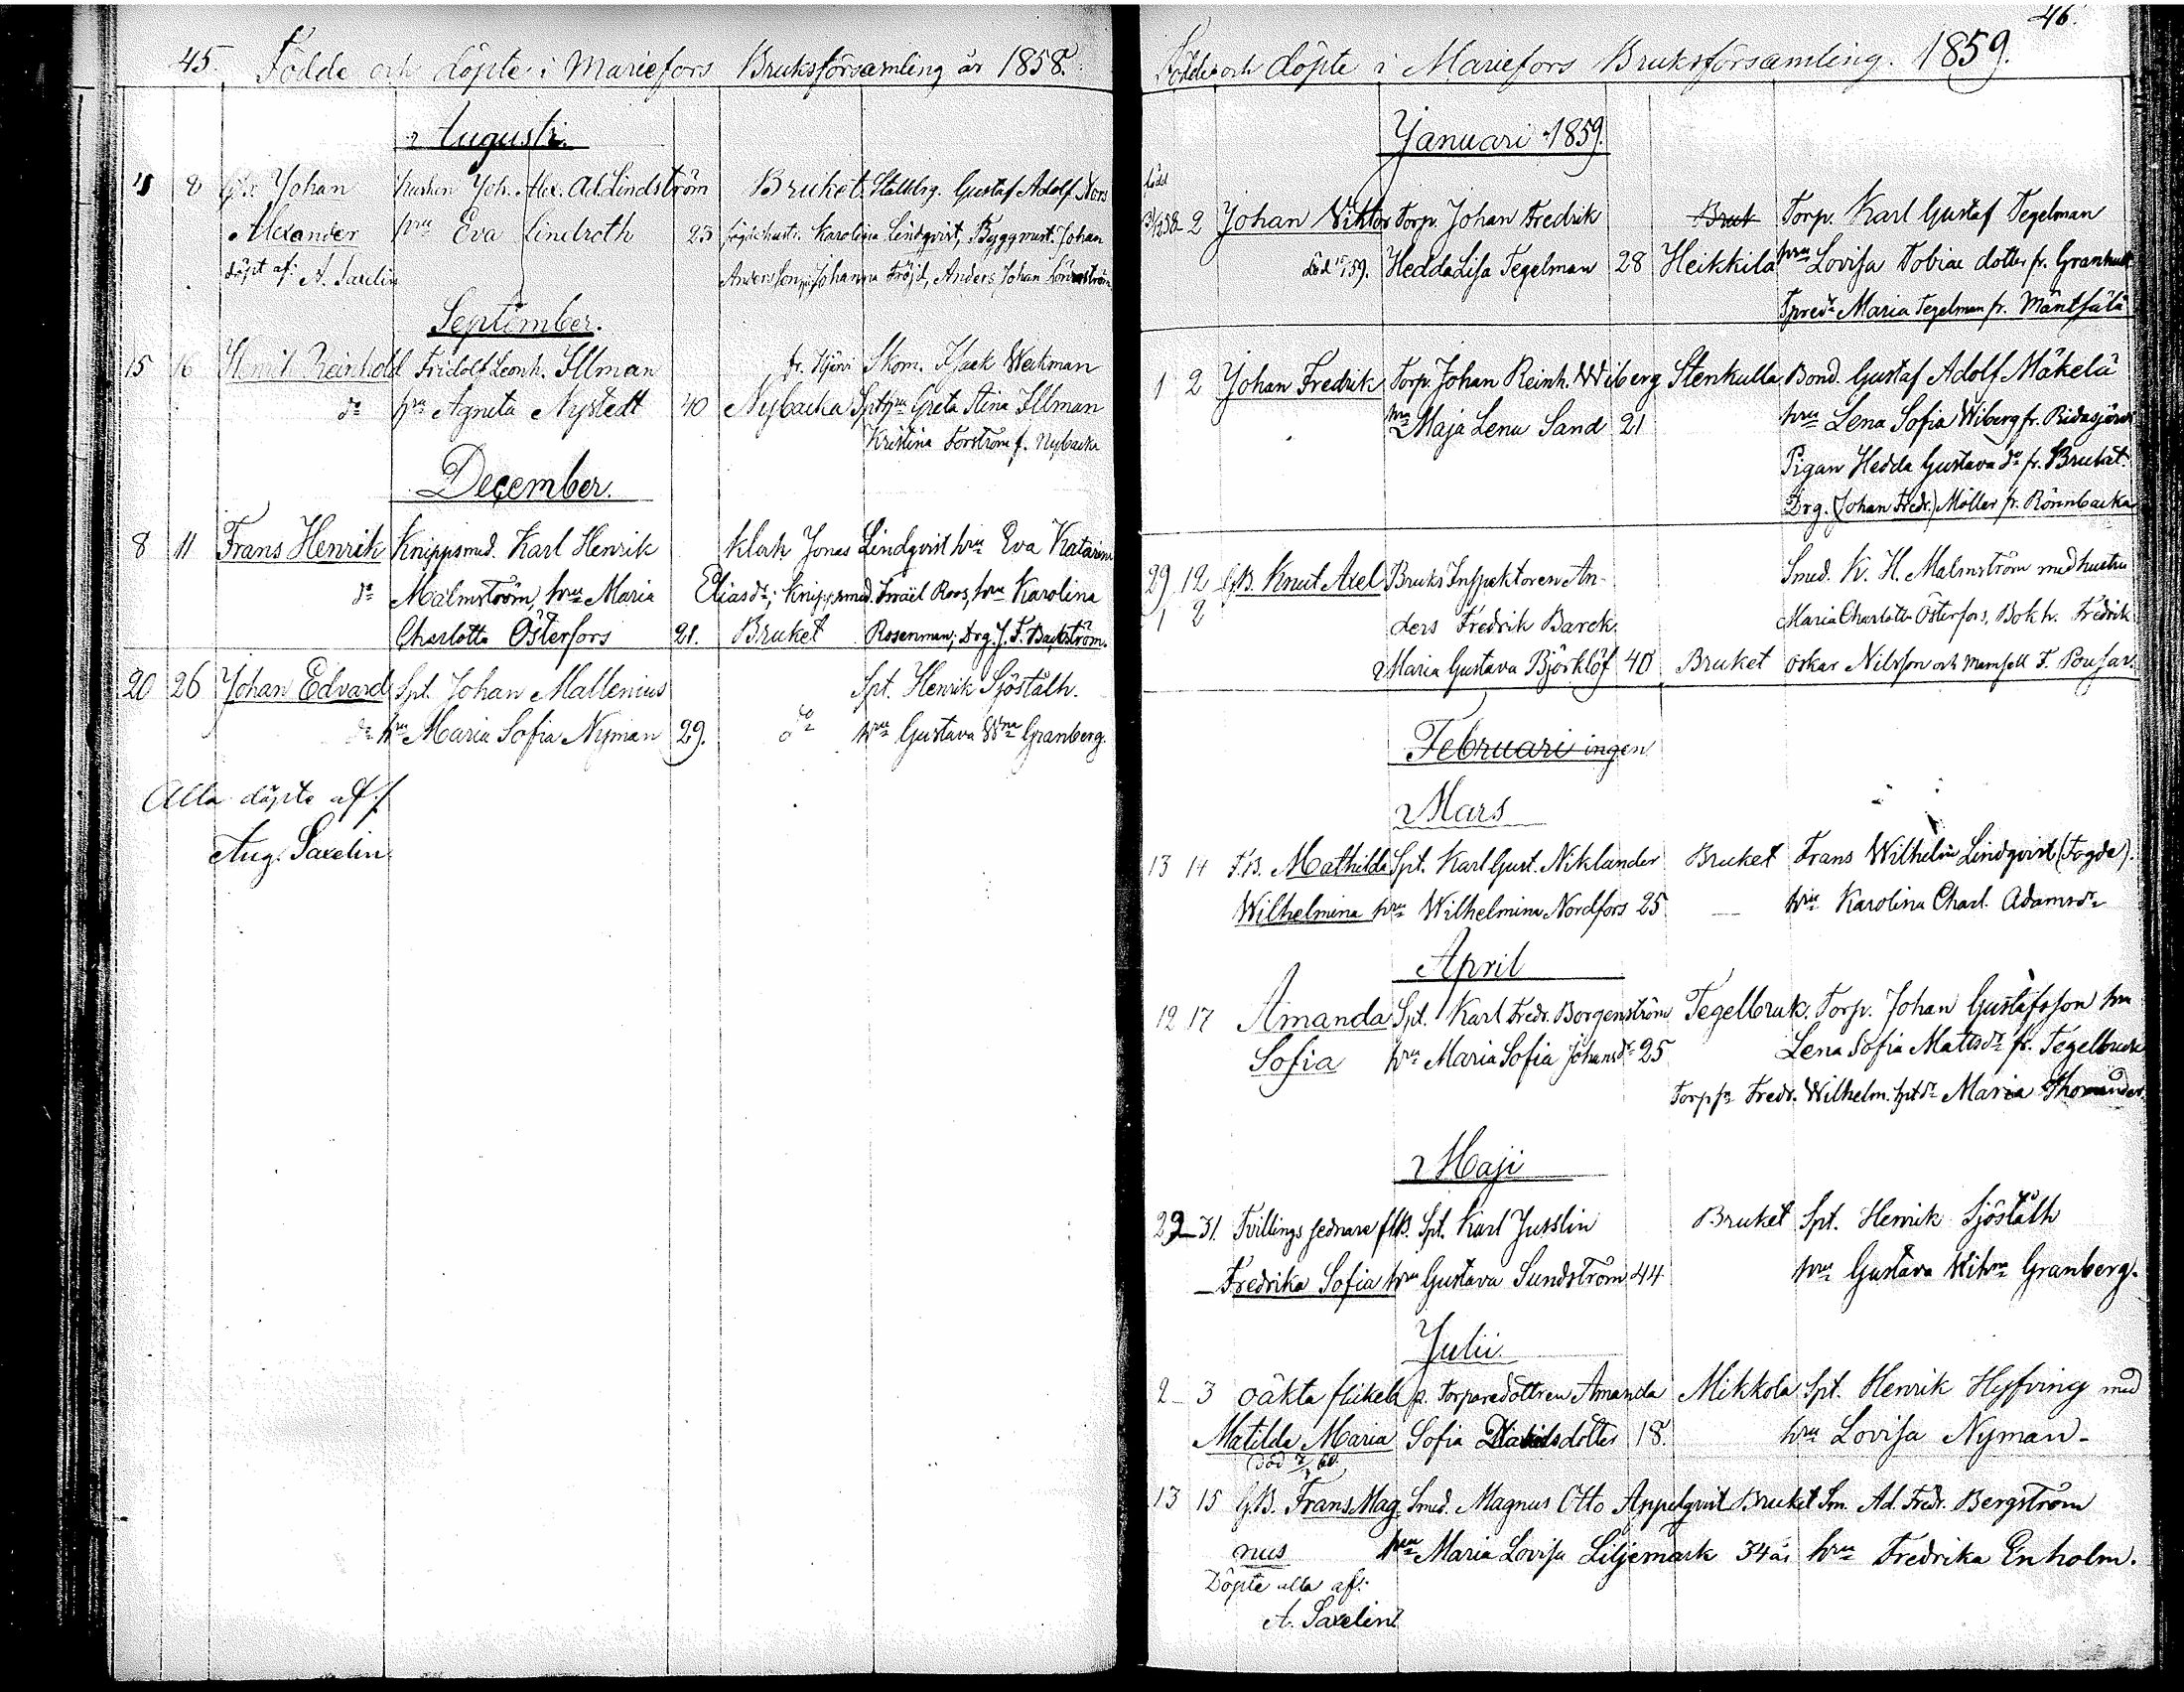 45. Födde och döpte i Mariefors Bruksförsamling år 1858.
Augusti.
8 Johan Kusken Joh. Alex. Ad. Lindström Bruket. Gustaf Adolf
Alexander hru Eva Lindroth 23 Karolina Lindqvist, Byggmast. Johan
döpt af: A. Saxelin Andersson, Johanna Fröjd, Anders Johan
September.
15 16 Henrik Reinhold Fridolf Leonh. Illman fr. Skom. Isaek Wekman
dn hru Agneta Nystedt 40 Nybacka Spt hru Greta Stina Illman
Kristina Forström f. Nybacka
December.
8 11 Frans Henrik Knippsmed. Karl Henrik Klock Jonas Lindqvist hru Eva Katarina
dn Malmström, hru Maria Eliasdr; Knippsmed. Israel Roos, hru Karolina
Charlotta Österfors 21. Bruket Rosenman; Drg. J. F. Backström.
20 26 Johan Edvard Spt. Johan Mallenius Spt. Henrik Sjöstålh.
dn hru Maria Sofia Nyman 29. do hru Gustava Wna Granberg.
Alla döpte af:
Aug. Saxelin.
46.
Födde och döpte i Mariefors Bruksförsamling. 1859.
Januari 1859.
född
31/12 58 2 Johan Viktor Torp. Johan Fredrik Bruk Torp. Karl Gustaf Tegelman
död 59. Hedda Lisa Tegelman 28 Heikkilä hru Lovisa Tobiae dotter fr. Grankulla
Tpredr Maria Tegelman fr. Mäntsälä
1 2 Johan Fredrik Torp. Johan Reinh. Wiberg Stenkulla Bond. Gustaf Adolf Mäkelä
hru Maja Lena Sand 21 hru Lena Sofia Wiberg fr. Ridasjärvi
Pigan Hedda Gustava dr fr. Bruket.
Drg. (Johan Fredr.) Möller fr. Rönnbacka
29 12 G.B. Knut Axel Bruks Inspektoren An- Smed. K. H. Malmström med hustru
1 2 ders Fredrik Barck. Maria Charlotta Österfors, Bokh. Fredrik
Maria Gustava Björklöf 40 Bruket Oskar Nilsson och Mamsell F. Pousar.
Februari ingen
Mars
13 14 F.B. Mathilda Spt. Karl Gust. Niklander Bruket Frans Wilhelm Lindqvist (Fogde).
Wilhelmina hru Wilhelmina Nordfors 25 — hru Karolina Charl. Adamsdr
April
12 17 Amanda Spt. Karl Fredr. Borgenström Tegelbruk. Torp. Johan Gustafsson hru
Sofia hru Maria Sofia Johansdr 25 Lena Sofia Matsdr fr. Tegelbruk
Torp sn Fredr. Wilhelm. Maria Thomander.
Maji
29 31. Tvillings sednare fl.B. Spt. Karl Jusslin Bruket Spt. Henrik Sjöstålh
Fredrika Sofia hru Gustava Sundström 44 hru Gustava Wilhna Granberg.
Julii.
2 3 oäkta flickeb fr. Torparedottren Amanda Mikkola Spt. Henrik Hyfving med
Matilda Maria Sofia Davidsdotter 18. hru Lovisa Nyman
död 60.
13 15 G.B. Frans Mag Smed. Magnus Otto Appelqvist Bruket Sm. Ad. Fredr. Bergström
nus hru Maria Lovisa Liljemark 34 år hru Fredrika Enholm.
Döpte alla af:
A. Saxelin